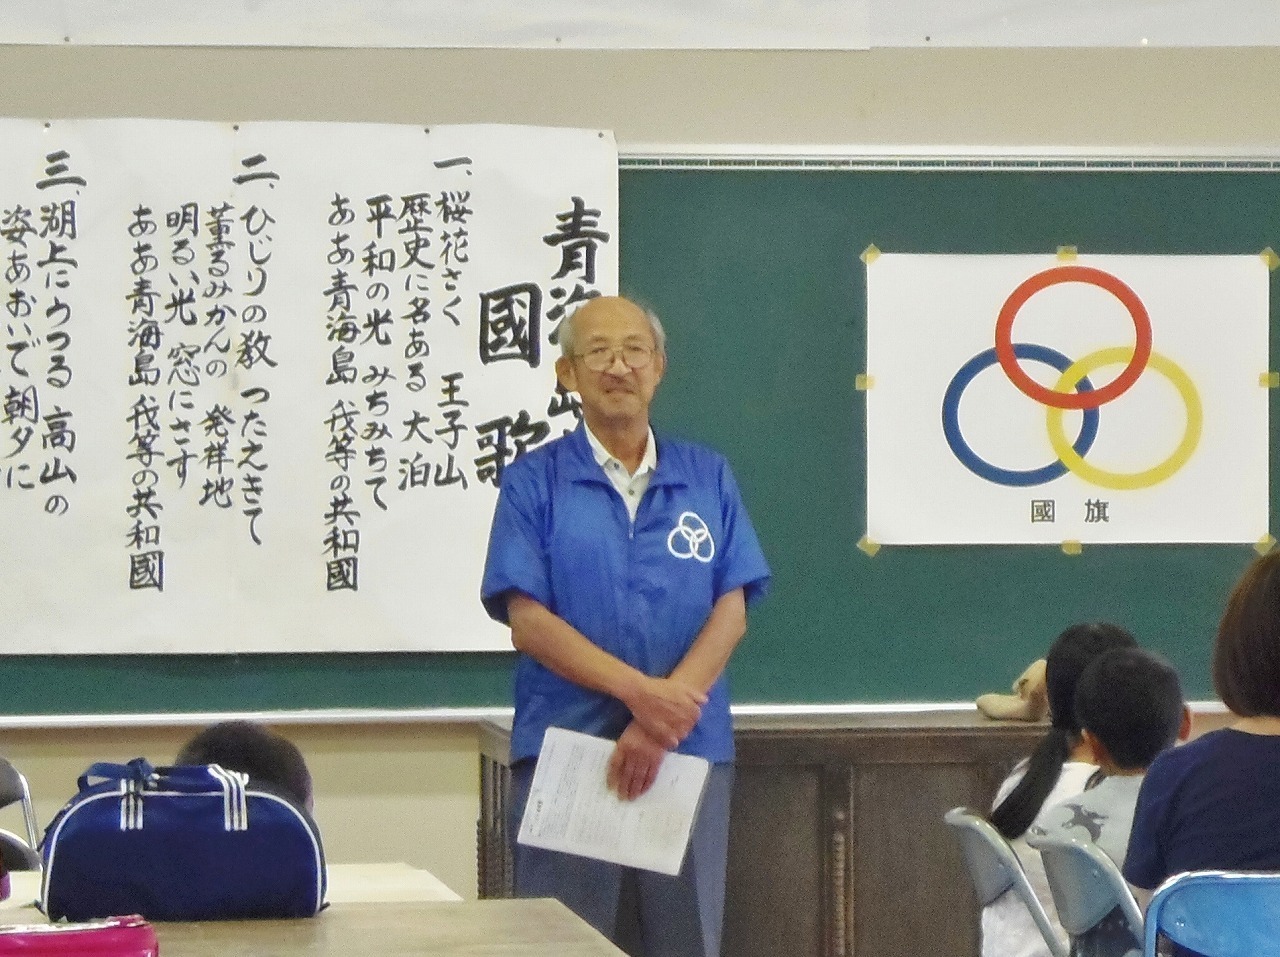 青海
國歌
一、桜花さく 王子山
歴史に名ある 大泊
平和の光 みちみちて
ああ青海島 我等の共和國
二、ひじりの教 つたえきて
薫るみかんの 発祥地
明るい光 窓にさす
ああ青海島 我等の共和國
三、湖上にうつる 高山の
姿あおいで 朝夕に
國旗